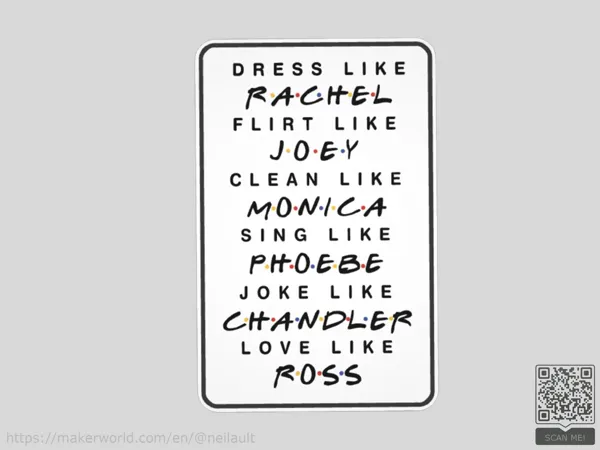 DRESS LIKE
R·A·C·H·E·L
FLIRT LIKE
J·O·E·Y
CLEAN LIKE
M·O·N·I·C·A
SING LIKE
P·H·O·E·B·E
JOKE LIKE
C·H·A·N·D·L·E·R
LOVE LIKE
R·O·S·S
https://makerworld.com/en/@neilault
SCAN ME!